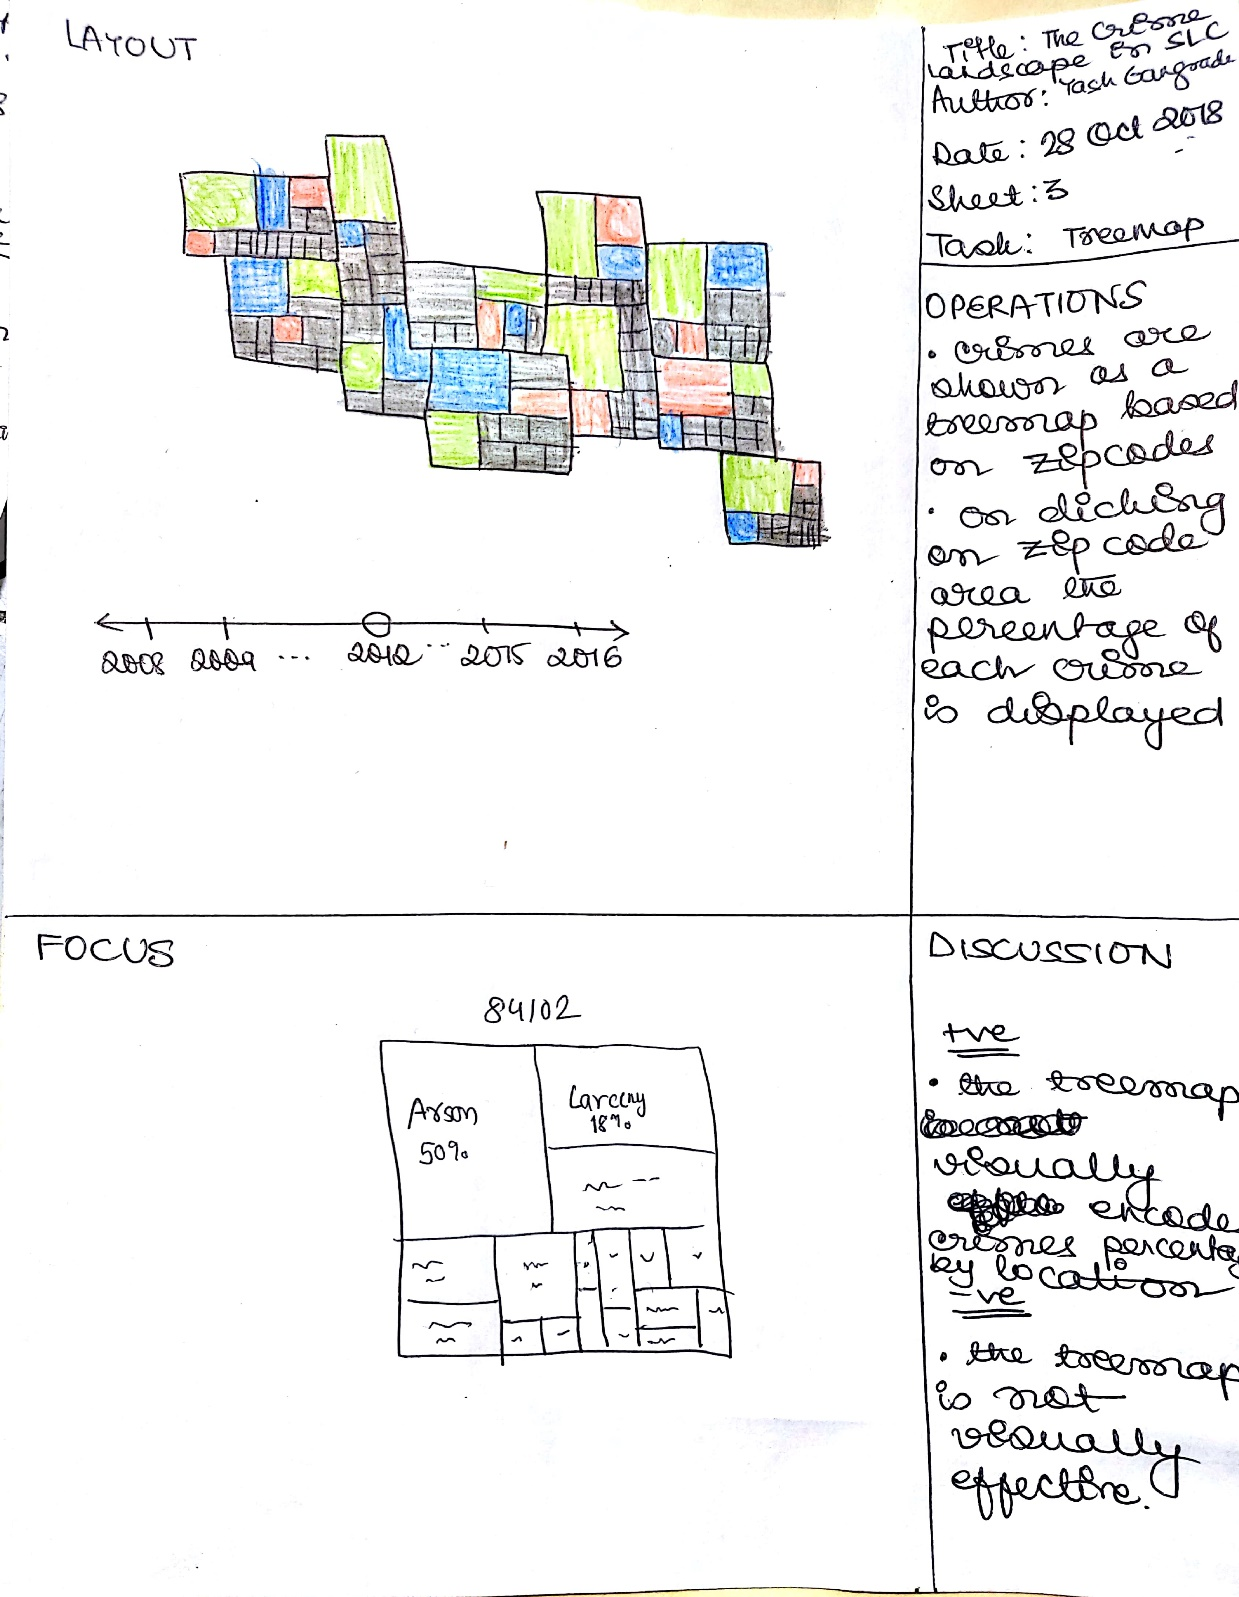 LAYOUT
2008 2009 ... 2012 .. 2015 2016
Title: The Crime
Landscape in SLC
Author: Yash Gangrade
Date: 28 Oct 2018
Sheet: 3
Task: Treemap
OPERATIONS
• crimes are
shown as a
treemap based
on zipcodes
• on clicking
on zip code
area the
percentage of
each crime
is displayed
FOCUS
84102
Arson
50%
Larceny
18%
DISCUSSION
+ve
• the treemap
visually
encode
crimes percentag
by location
-ve
• the treemap
is not
visually
effective.